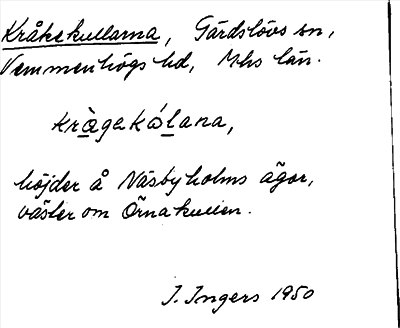 Kråkekullarna, Gärdslövs sn,
Vemmenhögs hd, Mhs län.
kràgekólana,
höjder å Näsbyholms ägor,
väster om Örnakullen.
I. Ingers 1950